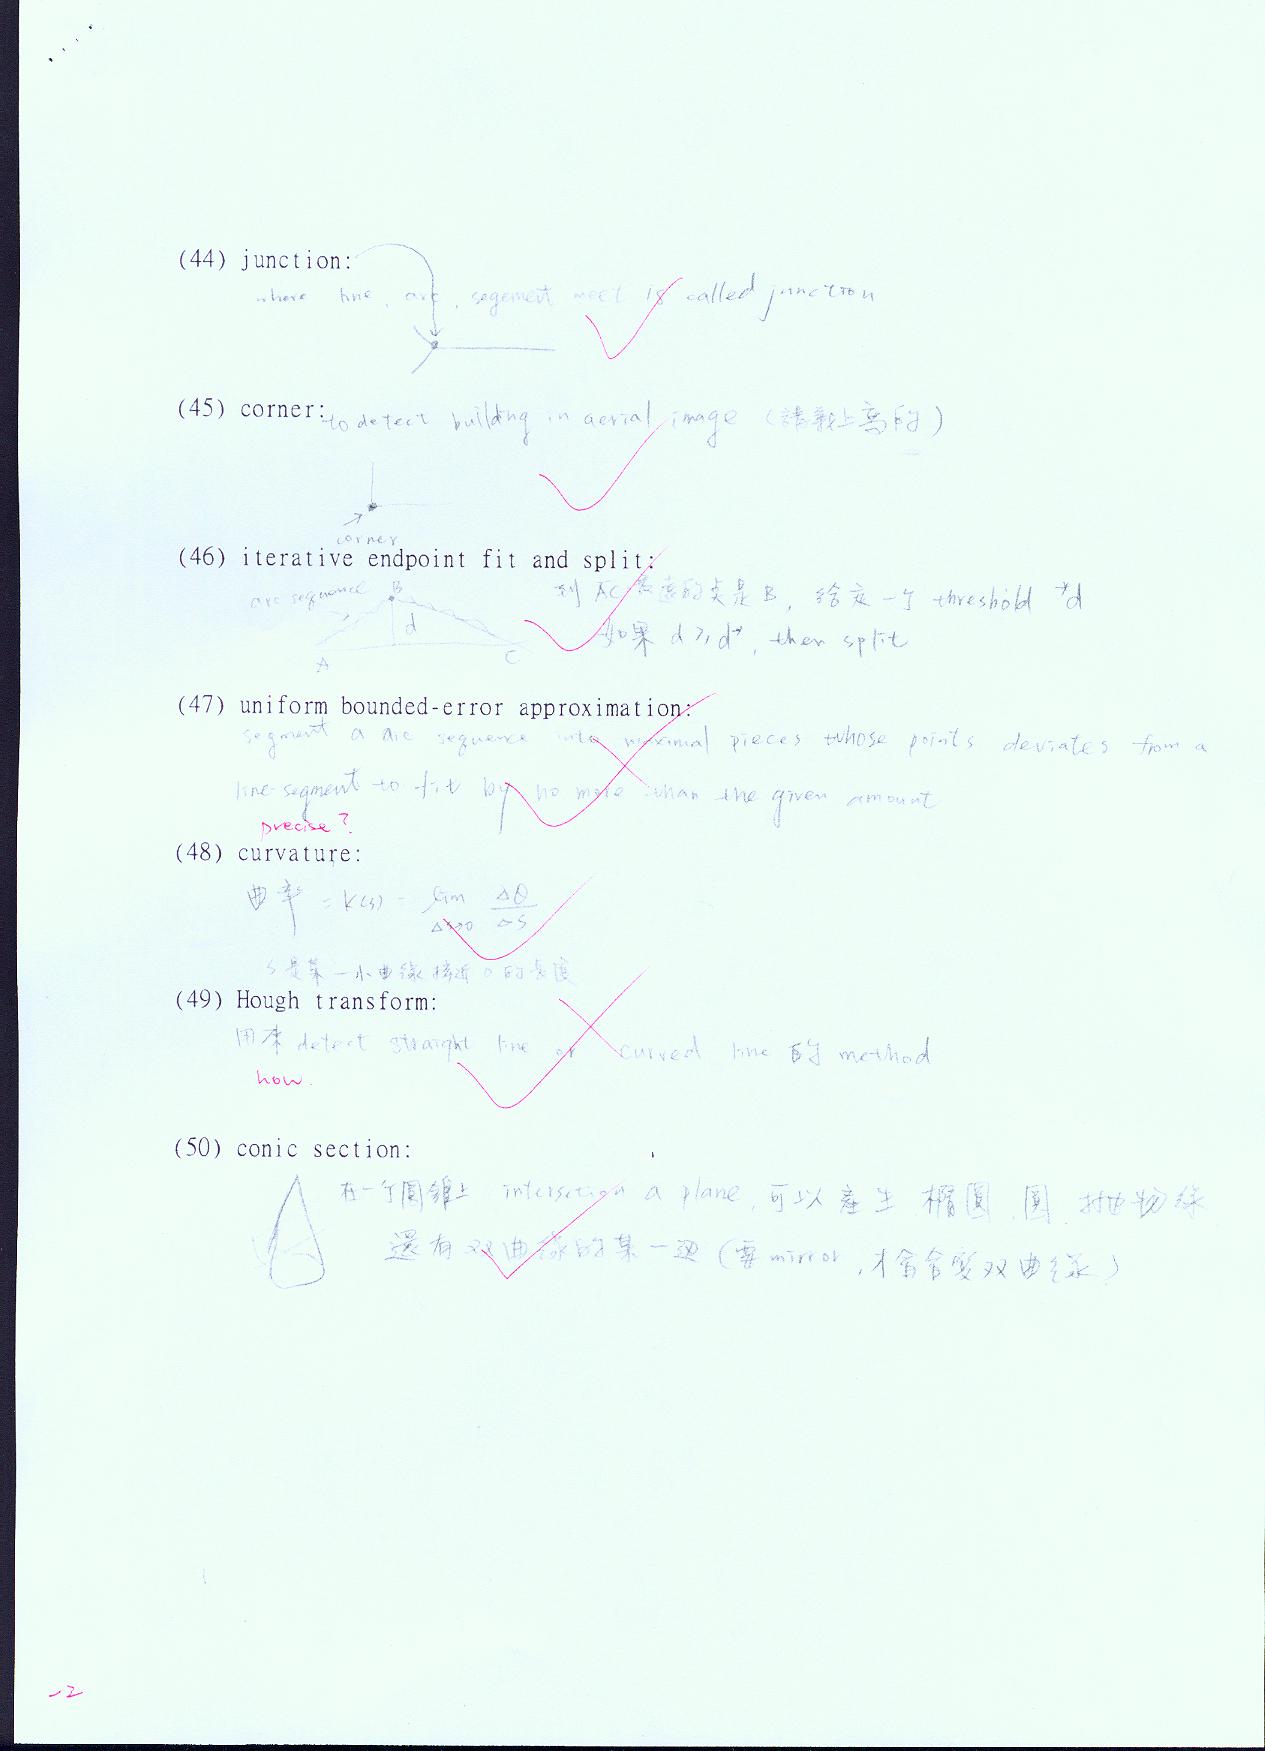 (44) junction:
where line, arc, segement meet is called junction
(45) corner: to detect building in aerial image (講義上寫的)
corner
(46) iterative endpoint fit and split:
arc sequence B 到 AC 最遠的点是 B, 給定一个 threshold *d
d 如果 d ≥ d*, then split
A C
(47) uniform bounded-error approximation:
segment a arc sequence into maximal pieces whose points deviates from a
line segment to fit by no more than the given amount
precise?
(48) curvature:
曲率 = K(s) = lim Δθ
Δs→0 Δs
s 是某一小曲線接近 0 的長度
(49) Hough transform:
用來 detect straight line or curved line 的 method
how.
(50) conic section:
在一个圓錐上 intersection a plane, 可以產生 橢圓 圓 拋物線
還有双曲線的某一边 (要 mirror, 才會 双曲線)
-2